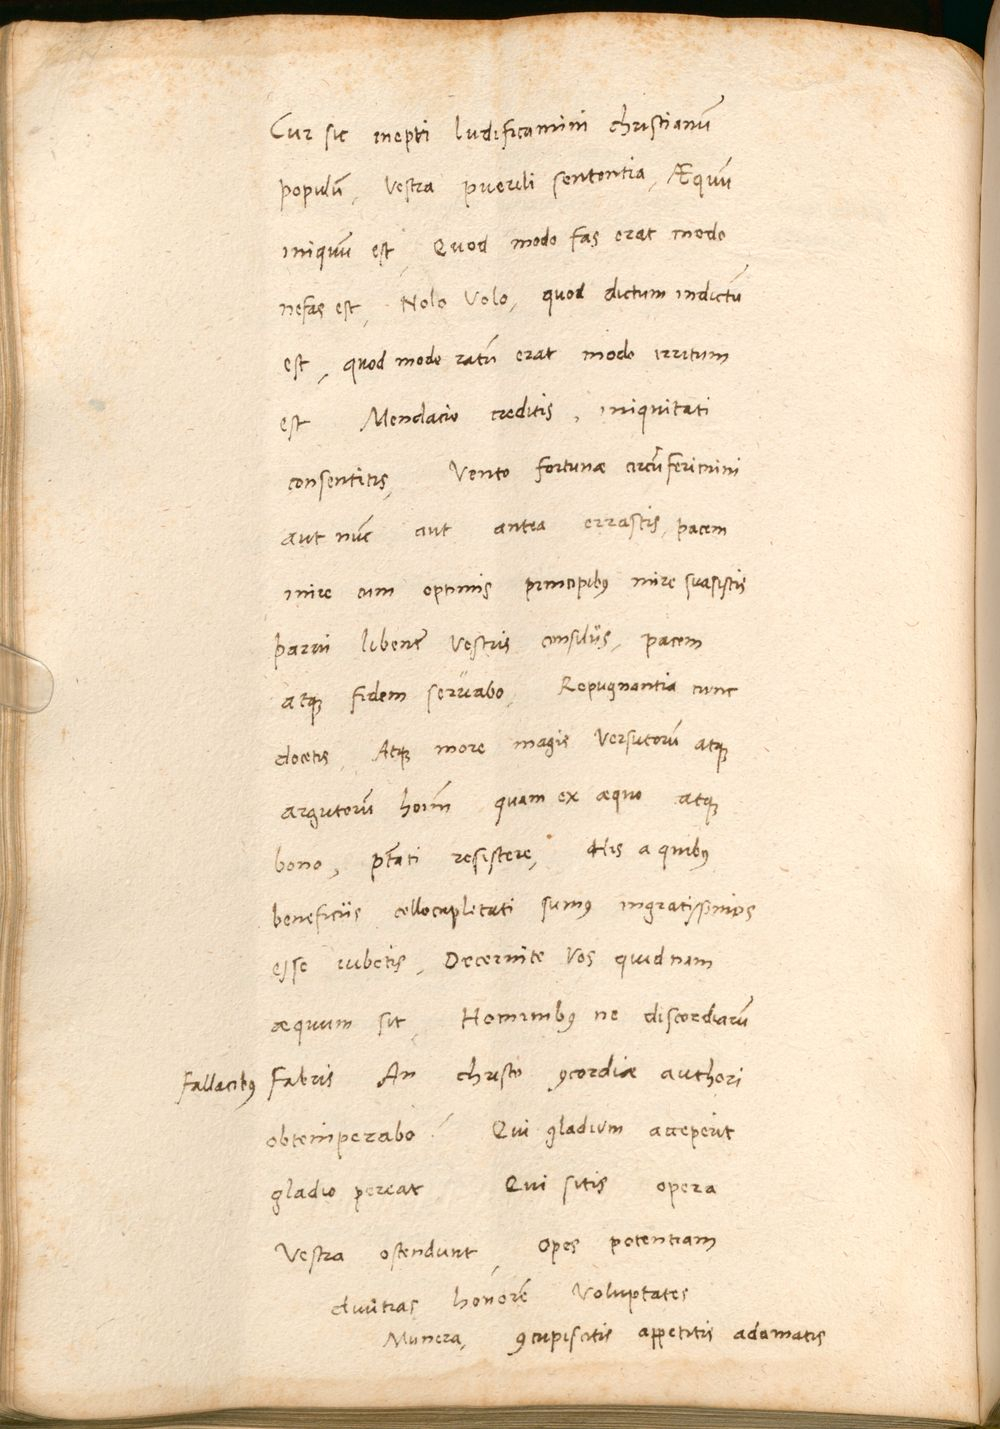 Cur sic inepti ludificamini christianū
populū, Vestra puerili sententia, Æquū
iniquū est, Quod modo fas erat modo
nefas est, Nolo Volo, quod dictum indictū
est, quod modo ratū erat modo irritum
est Mendacio creditis, iniquitati
consentitis, Vento fortunæ circūferimini
aut nūc aut antea errastis, pacem
inire cum optimis principibꝰ mire suasistis
parui libens Vestris consiliis, pacem
atqꝫ fidem seruabo, Repugnantia nunc
docetis, Atqꝫ more magis Versutorū atqꝫ
argutorū hoīm quam ex æquo atqꝫ
bono, ptāti resistere, His a quibꝰ
beneficiis collocupletati sumꝰ ingratissimos
esse iubetis, Decernite Vos quid nam
æquum sit Hominibꝰ ne discordiarū
fallacibꝰ Fabris An christo ꝯcordiæ authori
obtemperabo? Qui gladium acceperit
gladio pereat Qui sitis opera
Vestra ostendunt, Opes potentiam
diuitias honorē Voluptates
Munera, ꝯcupiscitis appetitis adamatis